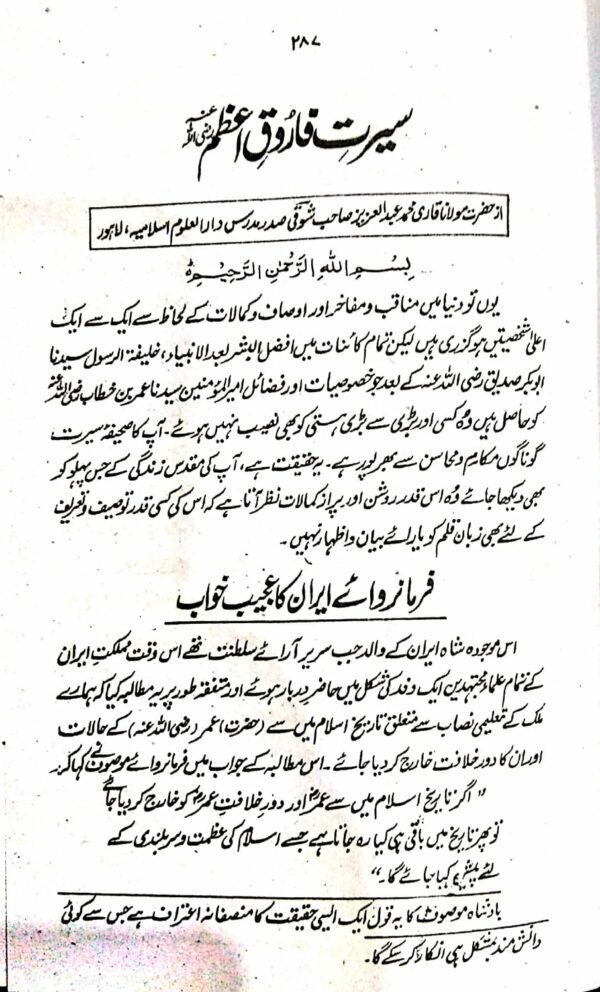 ۲۸۷
سیرتِ فاروقِ اعظم رضی اللہ عنہ
از حضرت مولانا قاری محمد عبد العزیز صاحب شوقی صدر مدرس دار العلوم اسلامیہ، لاہور
بِسْمِ اللهِ الرَّحْمٰنِ الرَّحِيْمِ
یوں تو دنیا میں مناقب و مفاخر اور اوصاف و کمالات کے لحاظ سے ایک سے ایک
اعلیٰ شخصیتیں ہو گزری ہیں لیکن تمام کائنات میں افضل البشر بعد الانبیاء، خلیفۃ الرسول سیدنا
ابوبکر صدیق رضی اللہ عنہ کے بعد جو خصوصیات اور فضائل امیر المؤمنین سیدنا عمر بن خطاب رضی اللہ عنہ
کو حاصل ہیں وُہ کسی اور بڑی سے بڑی ہستی کو بھی نصیب نہیں ہوئے۔ آپ کا صحیفۂ سیرت
گوناگوں مکارم و محاسن سے بھرپور ہے۔ یہ حقیقت ہے، آپ کی مقدس زندگی کے جس پہلو کو
بھی دیکھا جائے وُہ اس قدر روشن اور پر از کمالات نظر آتا ہے کہ اس کی کسی قدر توصیف و تعریف
کے لئے بھی زبان قلم کو یارائے بیان و اظہار نہیں۔
فرمانروائے ایران کا عجیب خواب
اس موجودہ شاہ ایران کے والد جب سریر آرائے سلطنت تھے اس وقت مملکتِ ایران
کے تمام علماء مجتہدین ایک وفد کی شکل میں حاضر دربار ہوئے اور متفقہ طور پر یہ مطالبہ کیا کہ ہمارے
ملک کے تعلیمی نصاب سے متعلق تاریخ اسلام میں سے (حضرت) عمر (رضی اللہ عنہ) کے حالات
اور ان کا دور خلافت خارج کر دیا جائے۔ اس مطالبہ کے جواب میں فرمانروائے موصوف نے کہا کہ:
”اگر تاریخ اسلام میں سے عمرؓ اور دور خلافتِ عمرؓ کو خارج کر دیا جائے
تو پھر تاریخ میں باقی ہی کیا رہ جاتا ہے جسے اسلام کی عظمت و سربلندی کے
لئے پیش کیا جائے گا۔“
بادشاہ موصوف کا یہ قول ایک ایسی حقیقت کا منصفانہ اعتراف ہے جس سے کوئی
دانش مند بمشکل ہی انکار کر سکے گا۔